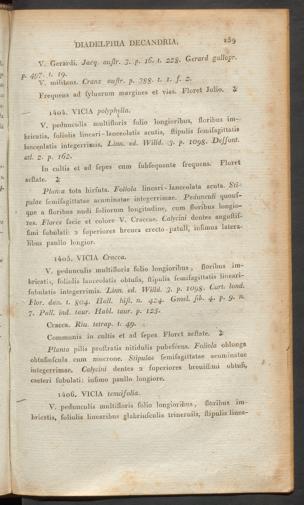 DIADELPHIA DECANDRIA. 259
V. Gerardi. Jacq. austr. 3. p. 16. t. 228. Gerard gallopr.
p. 497. t. 19.
V. militans. Cranz austr. p. 388. t. 1. f. 2.
Frequens ad syluarum margines et vias. Floret Julio. ♃
1404. VICIA polyphylla.
V. pedunculis multifloris folio longioribus, floribus im-
bricatis, foliolis lineari-lanceolatis acutis, stipulis semisagittatis
lanceolatis integerrimis. Linn. ed. Willd. 3. p. 1098. Desfont.
atl. 2. p. 162.
In cultis et ad sepes cum subsequente frequens. Floret
aestate. ♃
Planta tota hirsuta. Foliola lineari-lanceolata acuta. Sti-
pulae semisagittatae acuminatae integerrimae. Pedunculi
que a floribus nudi foliorum longitudine, cum floribus longio-
res. Flores facie et colore V. Craccae. Calycini dentes angustis-
simi subulati: 2 superiores breues erecto-patuli, infimus latera-
libus paullo longior.
1405. VICIA Cracca.
V. pedunculis multifloris folio longioribus, floribus im-
bricatis, foliolis lanceolatis obtusis, stipulis semisagittatis lineari-
subulatis integerrimis. Linn. ed. Willd. 3. p. 1098. Curt. lond.
Flor. dan. t. 804. Hall. hist. n. 424. Gmel. sib. 4. p. 9. n.
7. Pall. ind. taur. Habl. taur. p. 125.
Cracca. Riu. tetrap. t. 49.
Communis in cultis et ad sepes. Floret aestate. ♃
Planta pilis prostratis nitidulis pubescens. Foliola oblonga
obtusiuscula cum mucrone. Stipulae semisagittatae acuminatae
integerrimae. Calycini dentes 2 superiores breuissimi obtusi,
caeteri subulati: infimo paullo longiore.
1406. VICIA tenuifolia.
V. pedunculis multifloris folio longioribus, floribus im-
bricatis, foliolis linearibus glabriusculis trineruiis, stipulis linea-